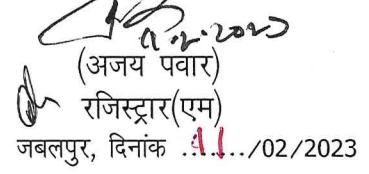 (अजय पवार)
रजिस्ट्रार(एम)
जबलपुर, दिनांक ..11../02/2023